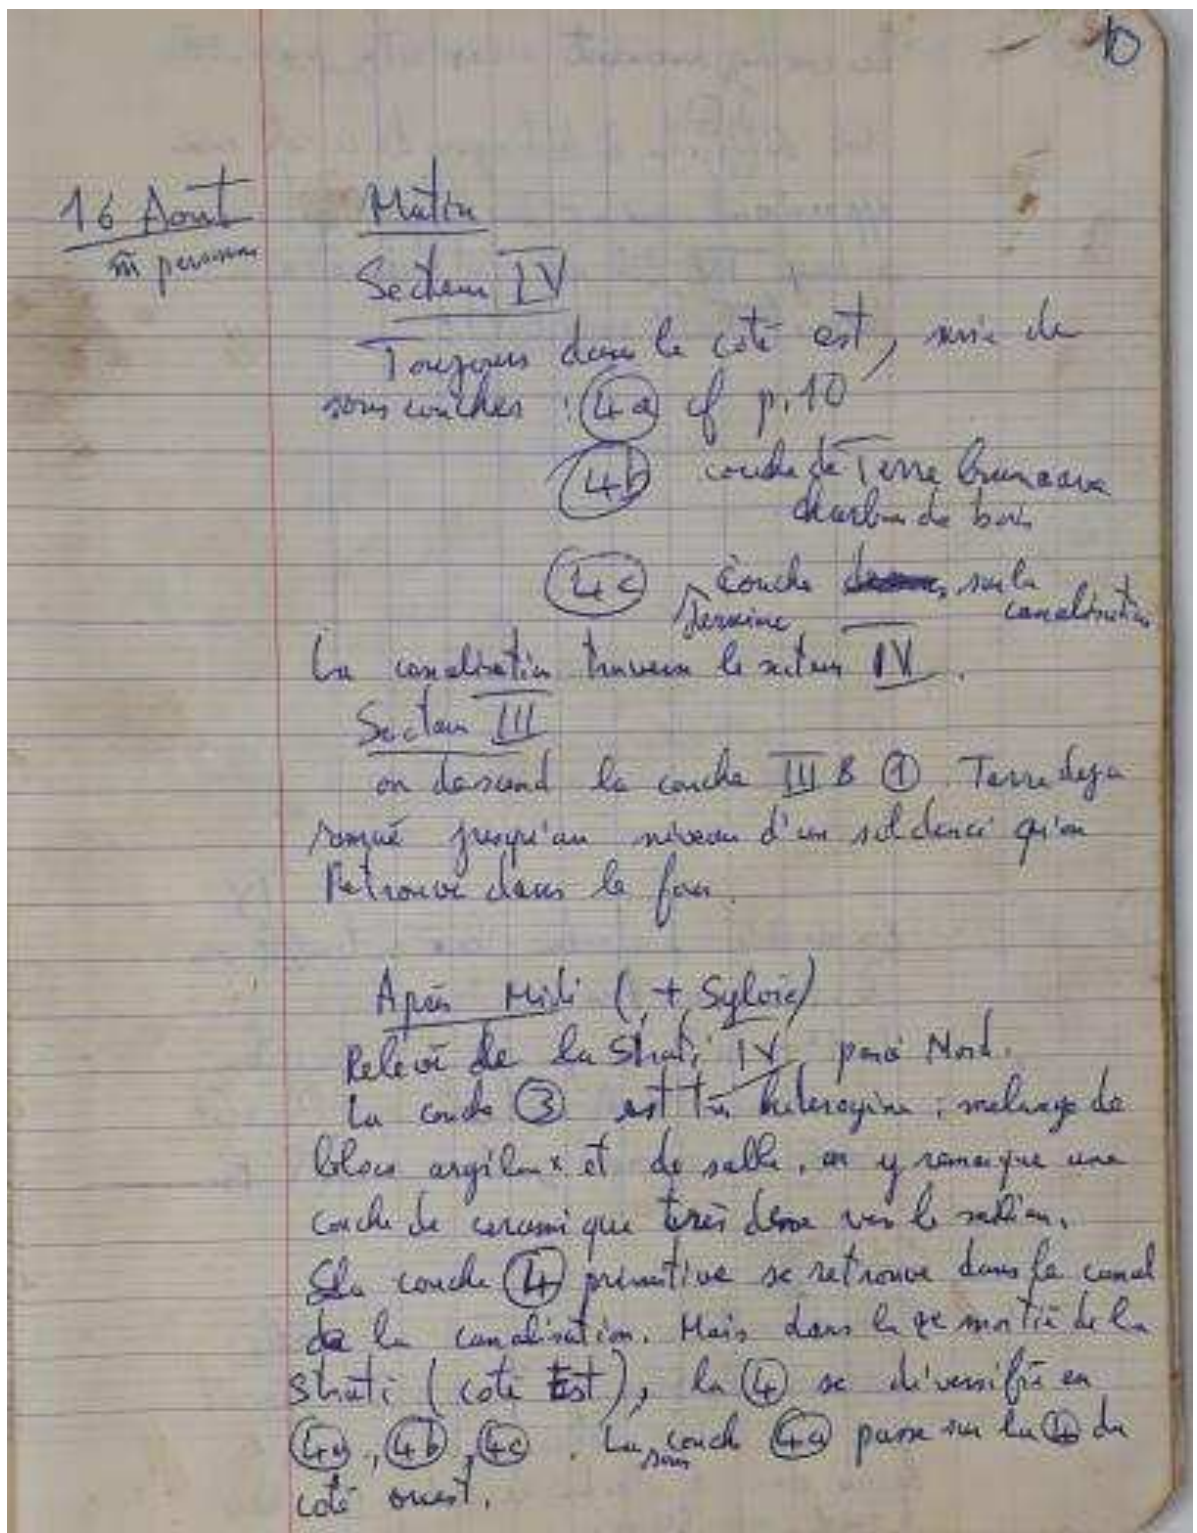 10
16 Aout
m̄ personnes
Matin
Secteur IV
Toujours dans le coté est, suite de
sous couches : 4a cf p. 10
4b couche de Terre brune avec
charbon de bois
4c couche sur la
dernière canalisation
La canalisation traverse le secteur IV.
Secteur III
on descend la couche III B 1 Terre deja
jusqu'au niveau d'un sol damé qu'on
Retrouve dans le four.
Après Midi (+ Sylvie)
Relevé de la Strati IV, paroi Nord.
La couche 3 est très heterogène : melange de
blocs argileux et de sable, on y remarque une
couche de ceramique très dense vers le milieu.
La couche 4 primitive se retrouve dans le canal
de la canalisation. Mais dans la 2e moitié de la
strati (coté Est), la 4 se diversifie en
4a, 4b, 4c. La sous couche 4a passe sur la 4 du
coté ouest.